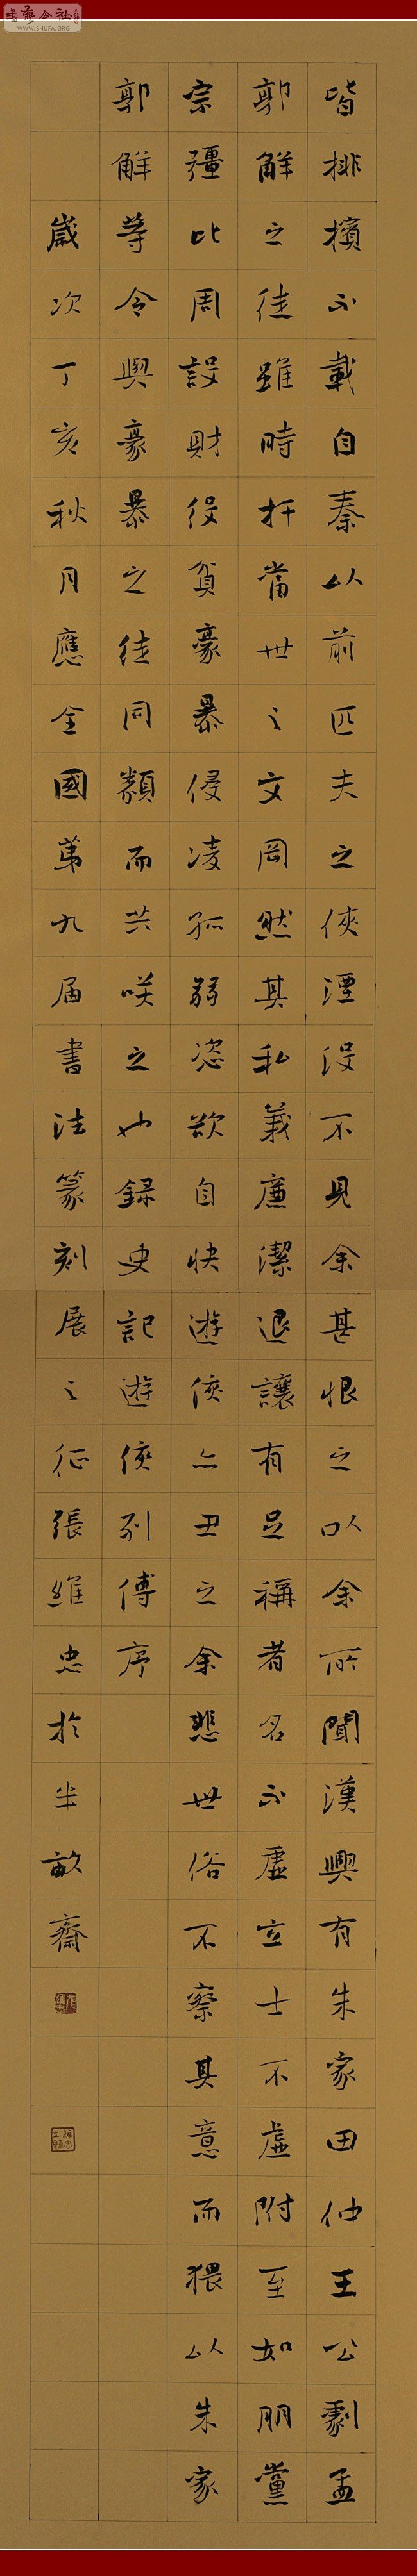 WWW.SHUFA.ORG
皆排擯不載自秦以前匹夫之俠湮没不見余甚恨之以余所聞漢興有朱家田仲王公劇孟
郭解之徒雖時扞當世之文罔然其私義廉潔退讓有足稱者名不虛立士不虛附至如朋黨
宗彊比周設財役貧豪暴侵凌孤弱恣欲自快遊俠亦丑之余悲世俗不察其意而猥以朱家
郭解等令與豪暴之徒同類而共咲之也録史記遊俠列傳序
歲次丁亥秋月應全國第九届書法篆刻展之征張維忠於半畝齋